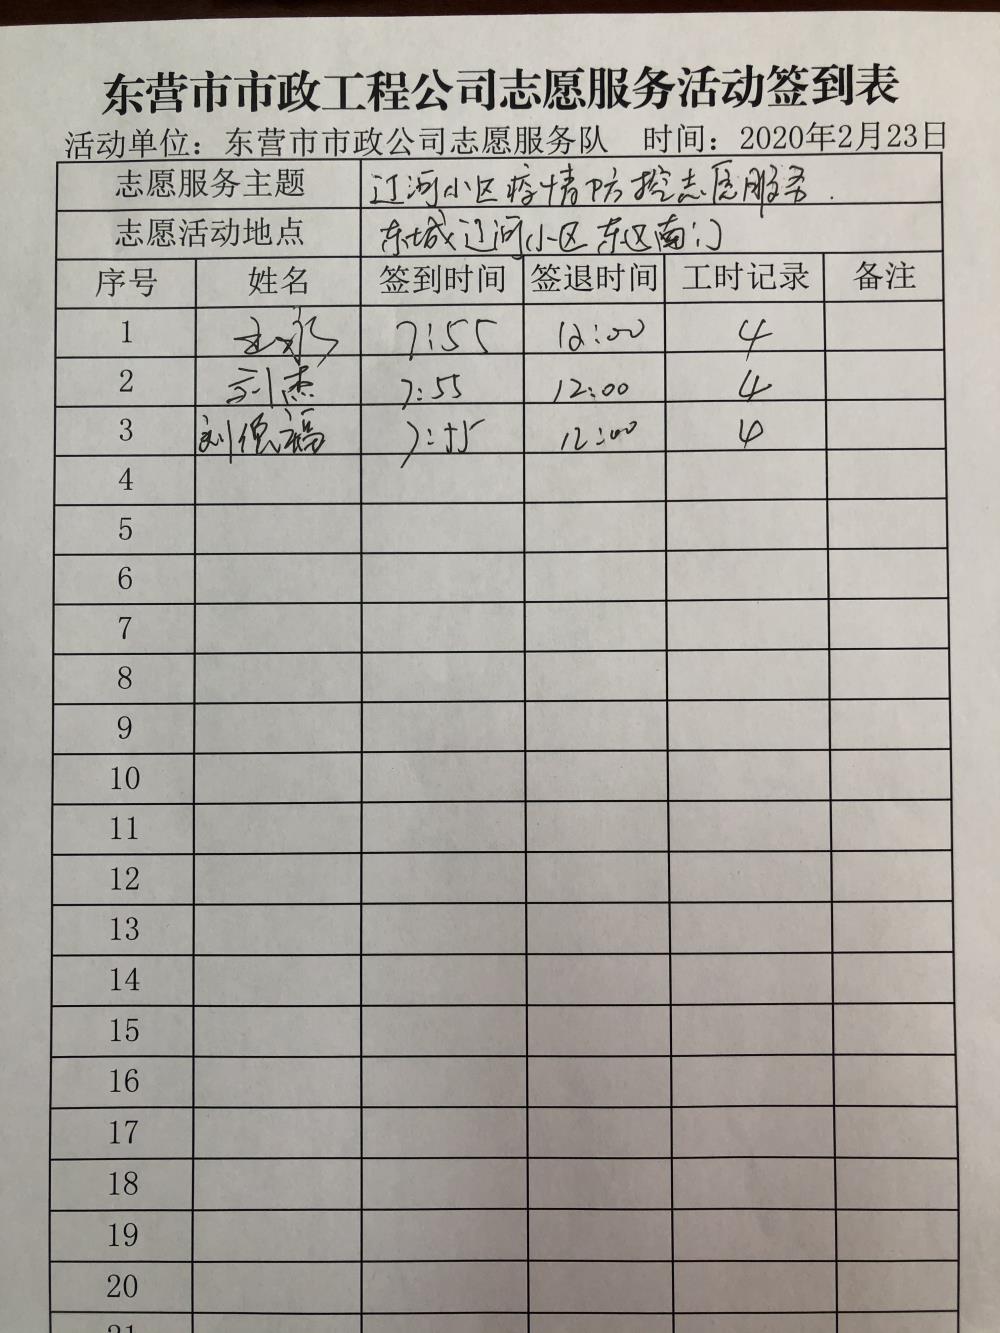 东营市市政工程公司志愿服务活动签到表
活动单位：东营市市政公司志愿服务队 时间：2020年2月23日
志愿服务主题 辽河小区疫情防控志愿服务.
志愿活动地点 东城辽河小区东区南门
序号 姓名 签到时间 签退时间 工时记录 备注
1 7:55 12:00 4
2 刘杰 7:55 12:00 4
3 刘俊福 7:55 12:00 4
4
5
6
7
8
9
10
11
12
13
14
15
16
17
18
19
20
21